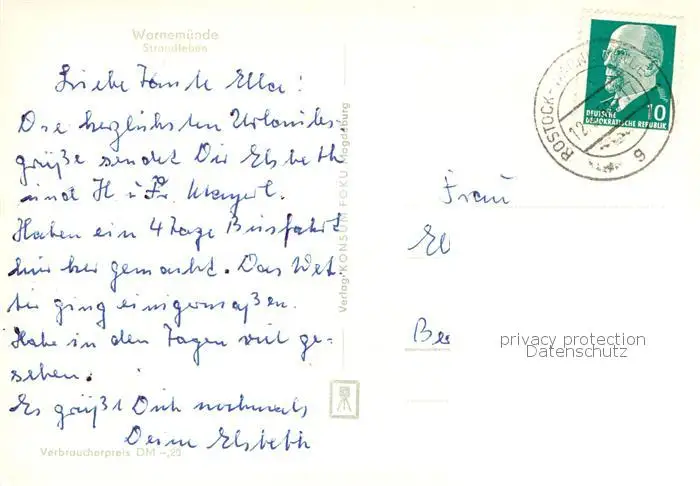 Warnemünde
Strandleben
Liebe Tante Ella!
Die herzlichsten Urlaubs-
grüße sendet Dir Elsbeth
und H u Fr.
Haben ein 4 Tage Busfahrt
hier her gemacht. Das Wet-
ter ging einigermaßen.
Habe in den Tagen viel ge-
sehen.
Es grüßt Dich nochmals
Deine Elsbeth
Verbraucherpreis DM -,20
Verlag KONSUM FOKU Magdeburg
10
DEUTSCHE
DEMOKRATISCHE REPUBLIK
ROSTOCK-
12
g
Frau
El
Be
privacy protection
Datenschutz